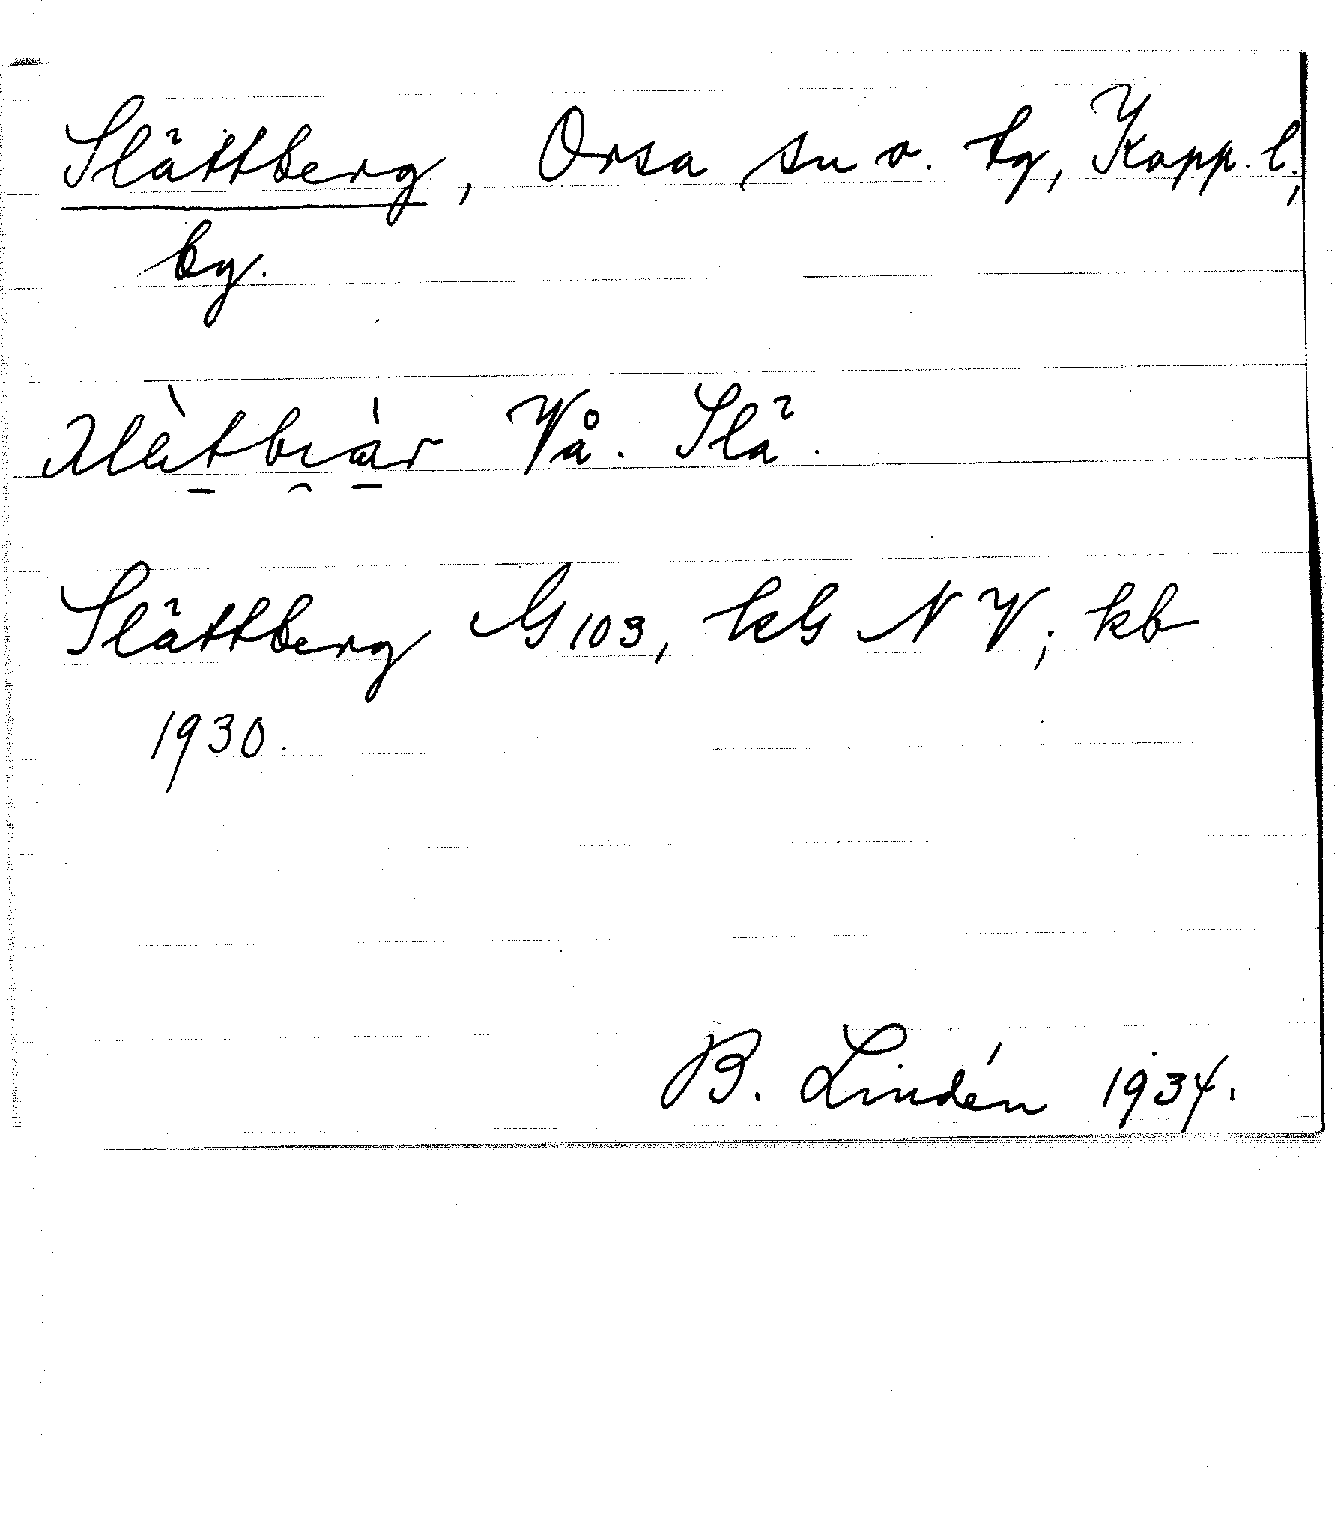 Slättberg, Orsa sn o. tg, Kopp. l.,
by.
Vå. Slä.
Slättberg G 103, kG N V; kb
1930.
B. Lindén 1934.